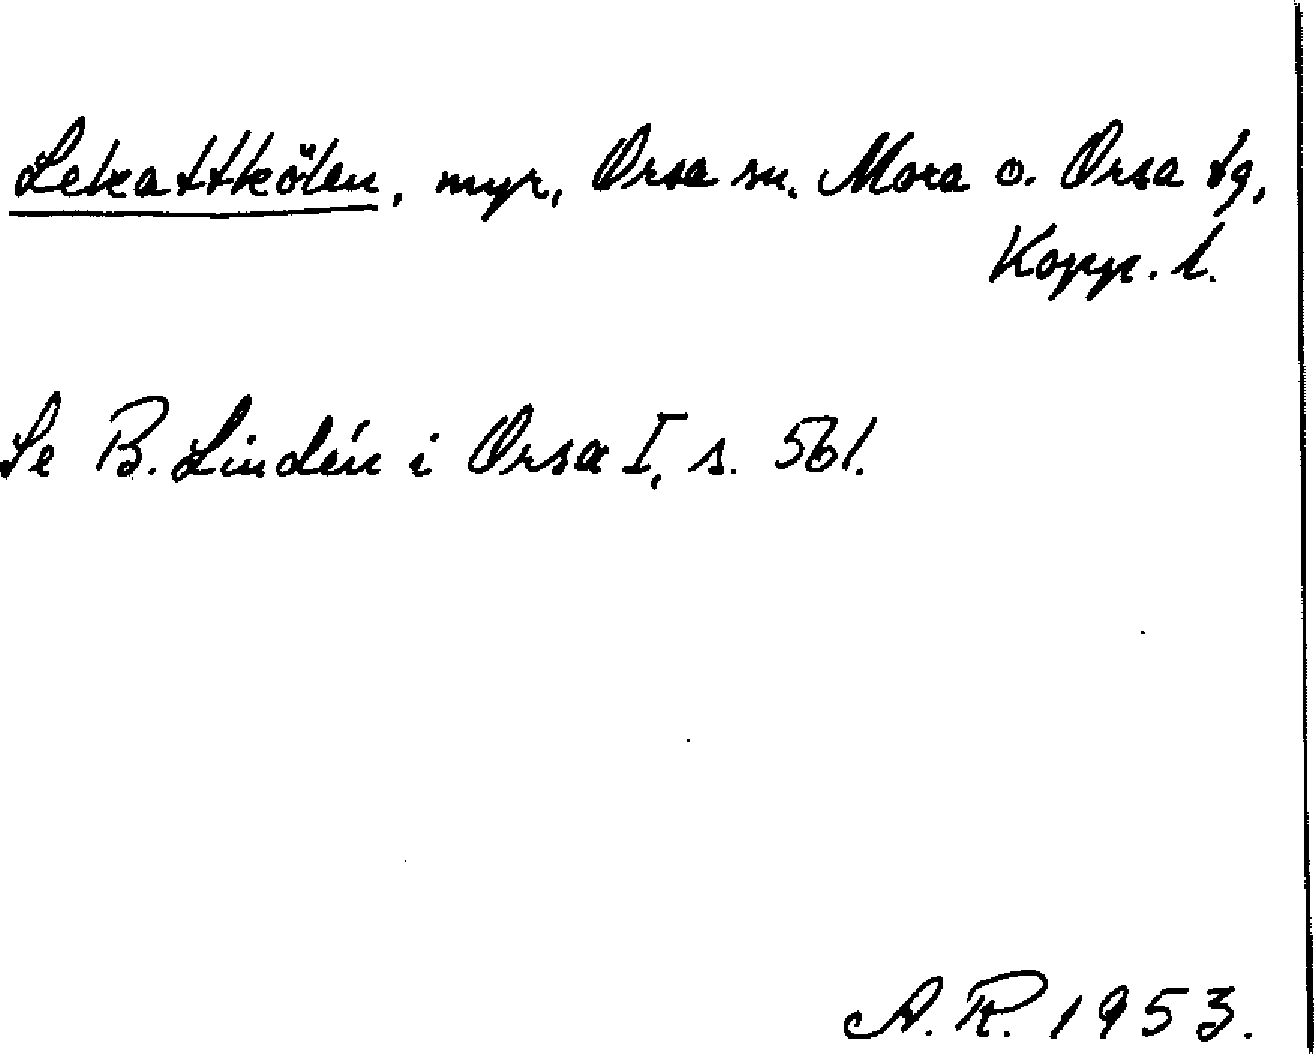 Lekattkölen, myr, Orsa sn. Mora o. Orsa tg,
Kopp. l.
Se B. Lindén i Orsa I, s. 561.
A.R. 1953.